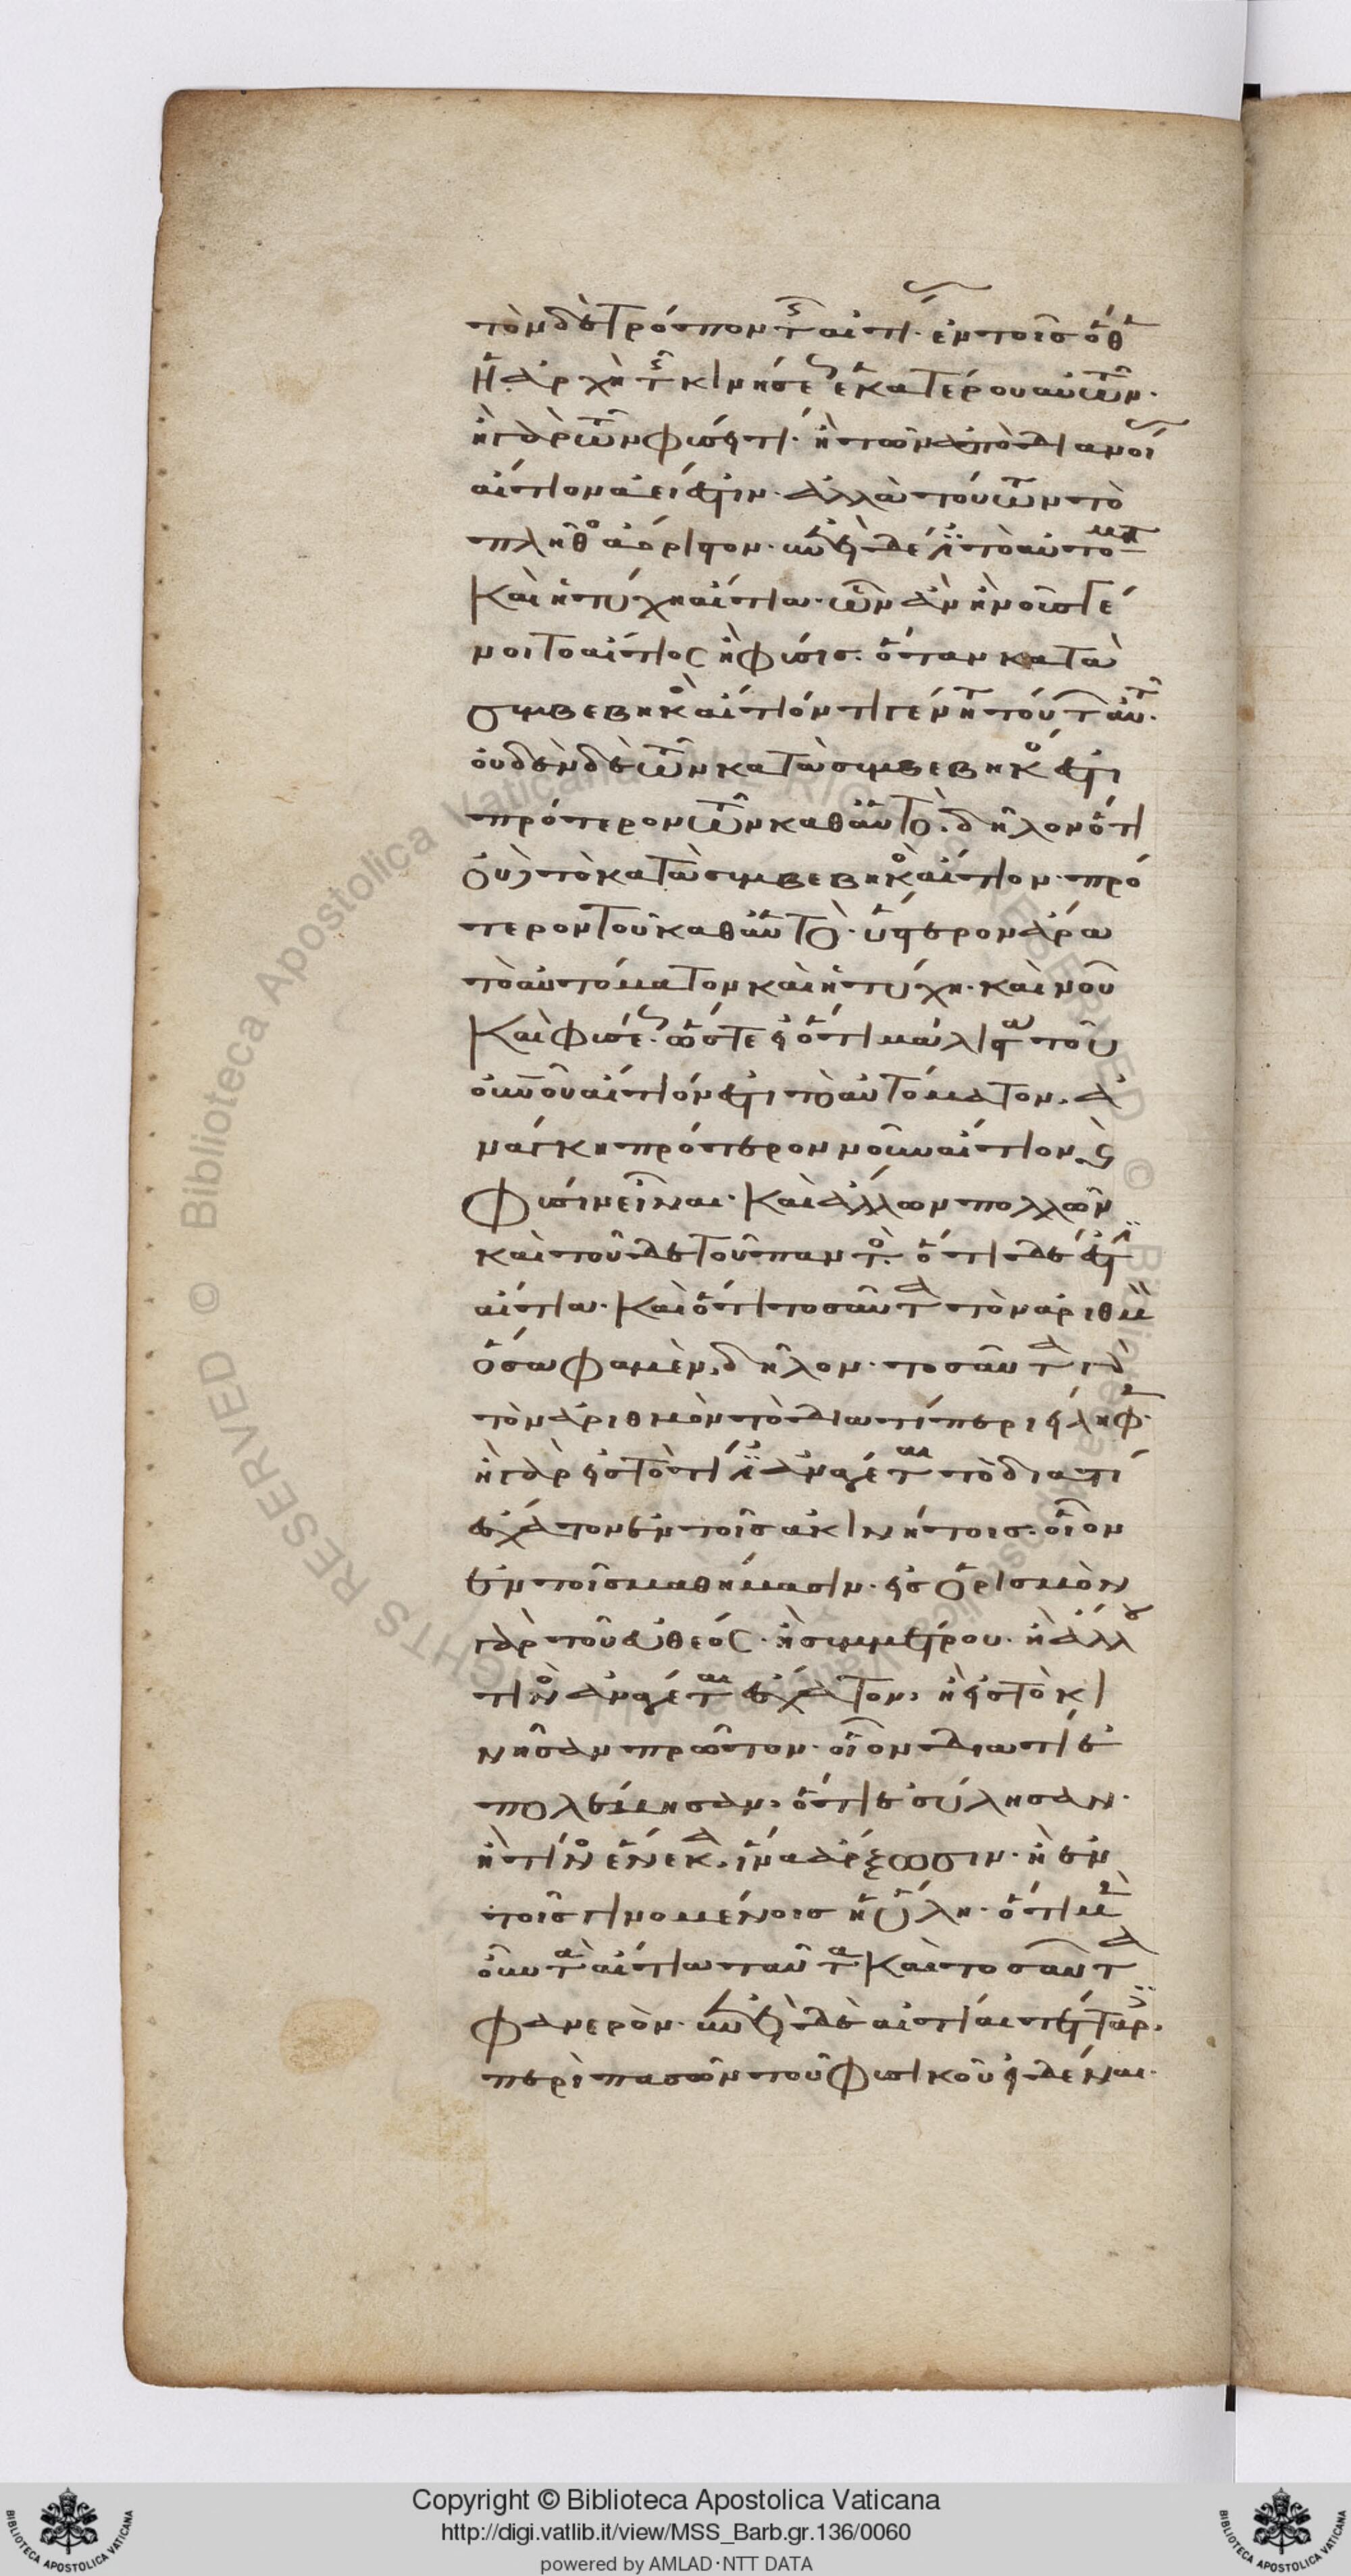 τὸν δὲ τρόπον τῆς αἰτί· ἐν τοῖς ὅθ
ἡ ἀρχὴ τῆς κινήσε ἑκάτερον αὐτῶν·
ἢ γὰρ τῶν φύσει τι· ἢ τῶν ἀπὸ διανοί
αἴτιον ἀεί ἐστιν· ἀλλὰ τούτων τὸ
πλῆθος ἀόριστον· ἐπεὶ δέ ἐστι τὸ αὐτόμα
καὶ ἡ τύχη αἴτια· ὧν ἂν ἢ νοῦς γέ
νοιτο αἴτιος ἢ φύσις· ὅταν κατὰ
συμβεβηκὸς αἴτιόν τι γένηται τούτων αὐτῶν·
οὐδὲν δὲ τῶν κατὰ συμβεβηκός ἐστι
πρότερον τῶν καθ αὑτό· δῆλον ὅτι
οὐδὲ τὸ κατὰ συμβεβηκὸς αἴτιον· πρό
τερον τοῦ καθ αὑτό· ὕστερον ἄρα
τὸ αὐτόματον καὶ ἡ τύχη· καὶ νοῦ
καὶ φύσε· ὥστε εἰ ὅτι μάλιστα τοῦ
οὐρανοῦ αἴτιόν ἐστι τὸ αὐτόματον· ἀ
νάγκη πρότερον νοῦν αἴτιον καὶ
φύσιν εἶναι· καὶ ἄλλων πολλῶν
καὶ τοῦδε τοῦ παντός· ὅτι δέ ἐστιν
αἴτια· καὶ ὅτι τοσαῦτα τὸν ἀριθμ
ὅσα φαμέν, δῆλον· τοσαῦτα γ
τὸν ἀριθμὸν τὸ διὰ τί περιείληφ·
ἢ γὰρ εἰς τὸ τί ἐστιν ἀνάγεται τὸ διὰ τί
ἔσχατον ἐν τοῖς ἀκινήτοις· οἷον
ἐν τοῖς μαθήμασιν· εἰς ὁρισμὸν
γὰρ τοῦ εὐθέος· ἢ συμμέτρου· ἢ ἄλλου
τινὸς ἀνάγεται ἔσχατον· ἢ εἰς τὸ κι
νῆσαν πρῶτον· οἷον διὰ τί ἐ
πολέμησαν· ὅτι ἐσύλησαν·
ἢ τίνος ἕνεκα· ἵνα ἄρξωσιν· ἢ ἐν
τοῖς γινομένοις ἡ ὕλη· ὅτι μὲν
οὖν τὰ αἴτια ταῦτα καὶ τοσαῦτα
φανερόν· ἐπεὶ δὲ αἰτίαι τέσσαρ·
περὶ πασῶν τοῦ φυσικοῦ εἰδέναι·
Copyright © Biblioteca Apostolica Vaticana
http://digi.vatlib.it/view/MSS_Barb.gr.136/0060
powered by AMLAD·NTT DATA